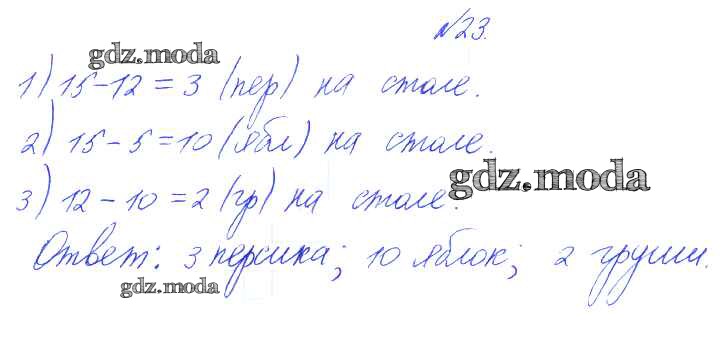 №23.
gdz.moda
1) 15-12=3 (пер) на столе.
2) 15-5=10 (ябл) на столе.
gdz.moda
3) 12-10=2 (гр) на столе.
Ответ: 3 персика; 10 яблок; 2 груши.
gdz.moda